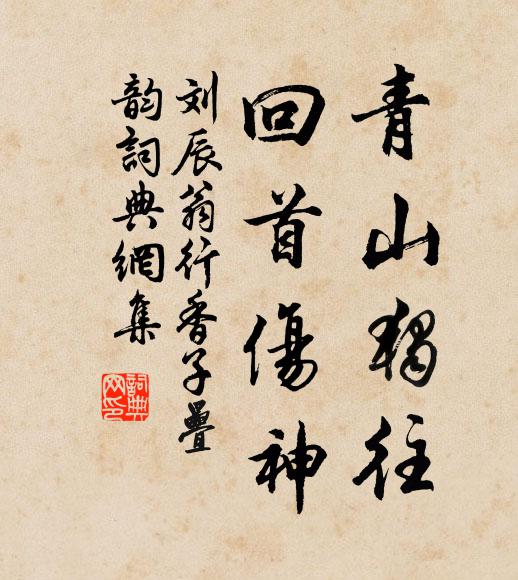 青山獨往
回首傷神
刘辰翁行香子疊
韵詞典網集
詞典
网印